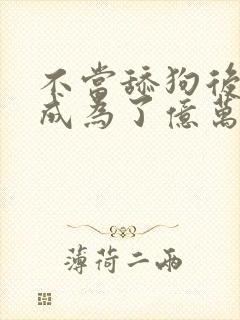 不當舔狗後
成為了億萬
薄荷二兩